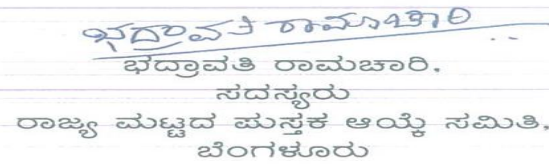 ಭದ್ರಾವತಿ ರಾಮಾಚಾರಿ
ಭದ್ರಾವತಿ ರಾಮಚಾರಿ.
ಸದಸ್ಯರು
ರಾಜ್ಯ ಮಟ್ಟದ ಪುಸ್ತಕ ಆಯ್ಕೆ ಸಮಿತಿ,
ಬೆಂಗಳೂರು